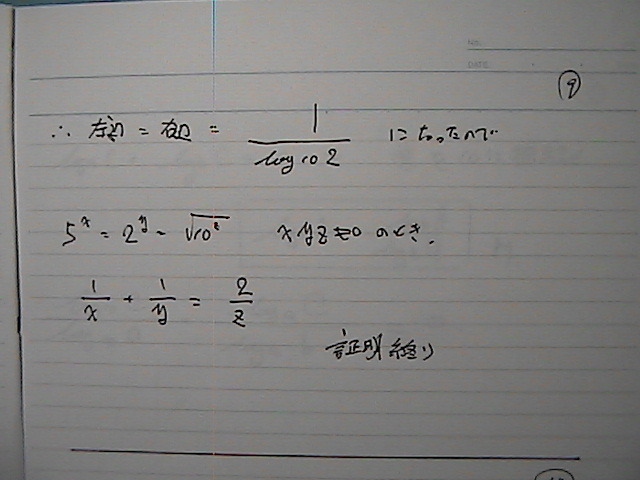 NO.
DATE
⑨
∴ 左辺 = 右辺 = 1/log₁₀2 になったので
5^x = 2^y = √10^z xyz≠0 のとき、
1/x + 1/y = 2/z
証明終り